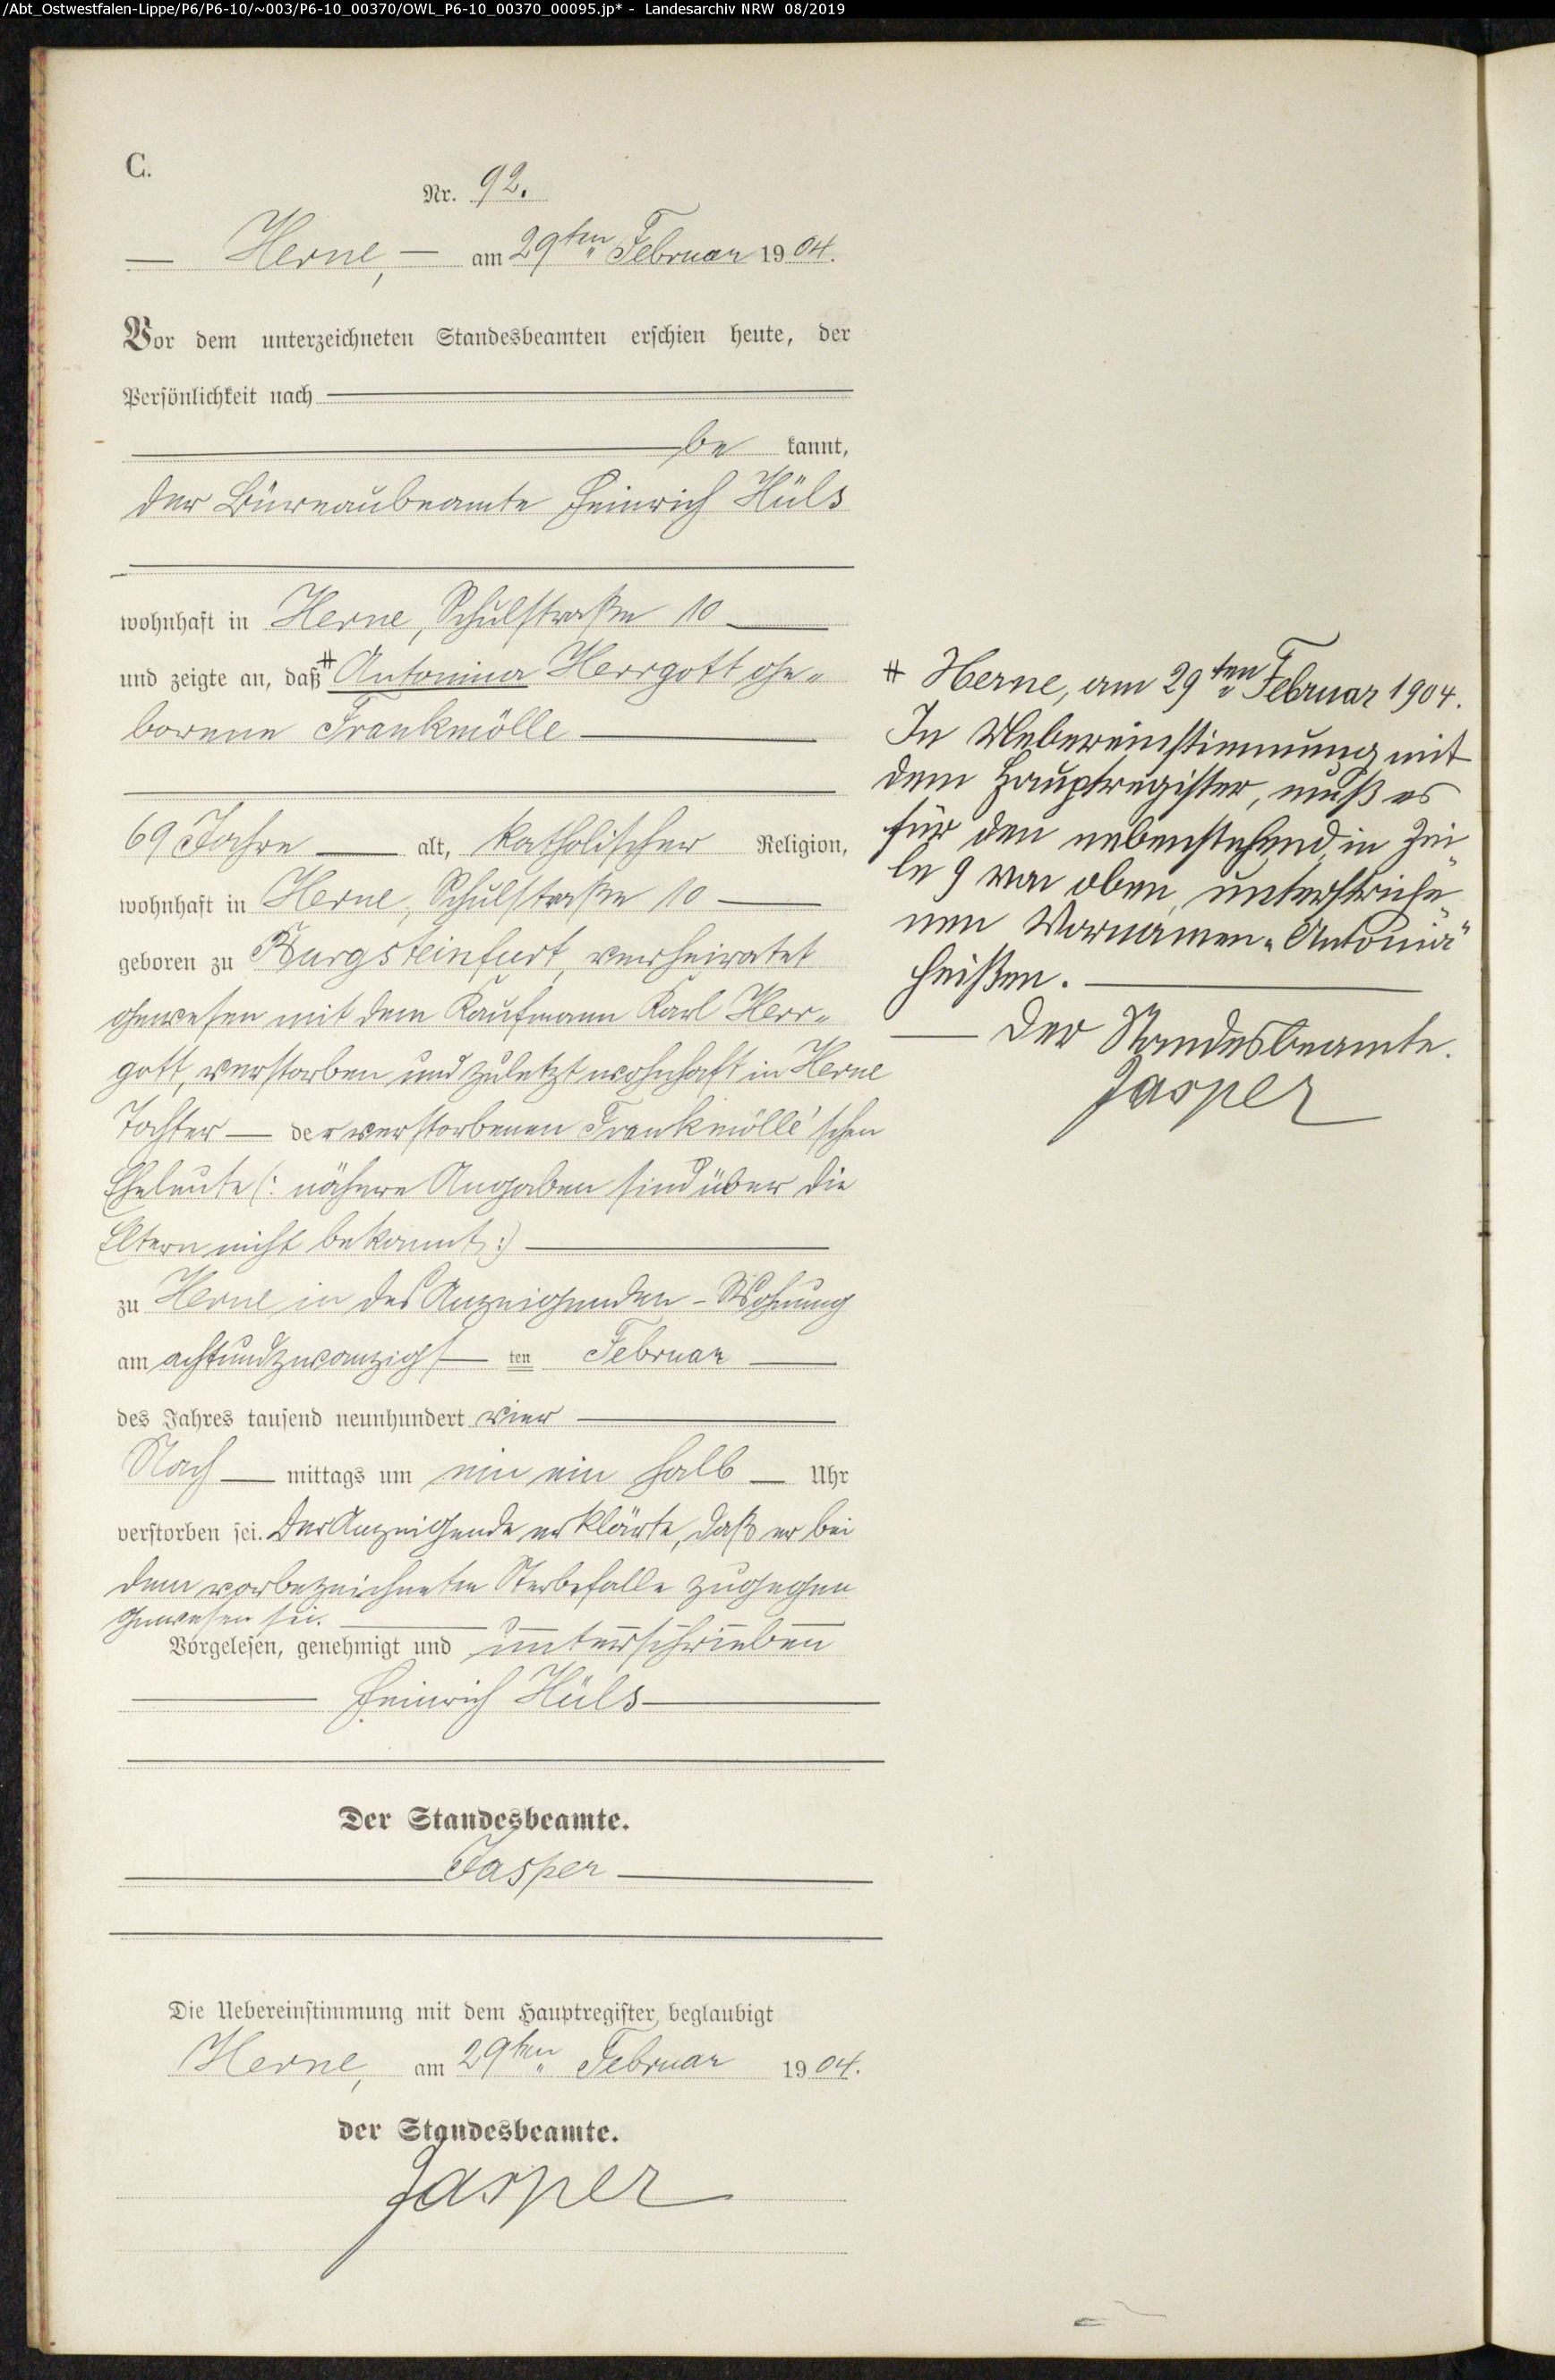 /Abt_Ostwestfalen-Lippe/P6/P6-10/~003/P6-10_00370/OWL_P6-10_00370_00095.jp* - Landesarchiv NRW 08/2019
C.
Nr. 92.
Herne, am 29ten Februar 1904.
Vor dem unterzeichneten Standesbeamten erschien heute, der
Persönlichkeit nach
be kannt,
der Büreaubeamte Heinrich Hüls
wohnhaft in Herne, Schulstraße 10
und zeigte an, daß # Antonina Herrgott ge„
borene Frankmölle
69 Jahre alt, katholischer Religion,
wohnhaft in Herne, Schulstraße 10
geboren zu Burgsteinfurt, verheiratet
gewesen mit dem Kaufmann Karl Herr„
gott, verstorben und zuletzt wohnhaft in Herne
Tochter der verstorbenen Frankmölle'schen
Eheleute (: nähere Angaben sind über die
Eltern nicht bekannt :)
zu Herne in des Anzeigenden - Wohnung
am achtundzwanzigsten Februar
des Jahres tausend neunhundert vier
Nach mittags um ein ein halb Uhr
verstorben sei. Der Anzeigende erklärte, daß er bei
dem vorbezeichneten Sterbefalle zugegen
gewesen sei.
Vorgelesen, genehmigt und unterschrieben
Heinrich Hüls
Der Standesbeamte.
Jasper
Die Uebereinstimmung mit dem Hauptregister beglaubigt
Herne, am 29ten Februar 1904.
der Standesbeamte.
Jasper
# Herne, am 29ten Februar 1904.
In Uebereinstimmung mit
dem Hauptregister, muß es
für den nebenstehend, in Zei
le 9 von oben, unterstriche„
nen Vornamen „Antonia"
heißen.
Der Standesbeamte.
Jasper